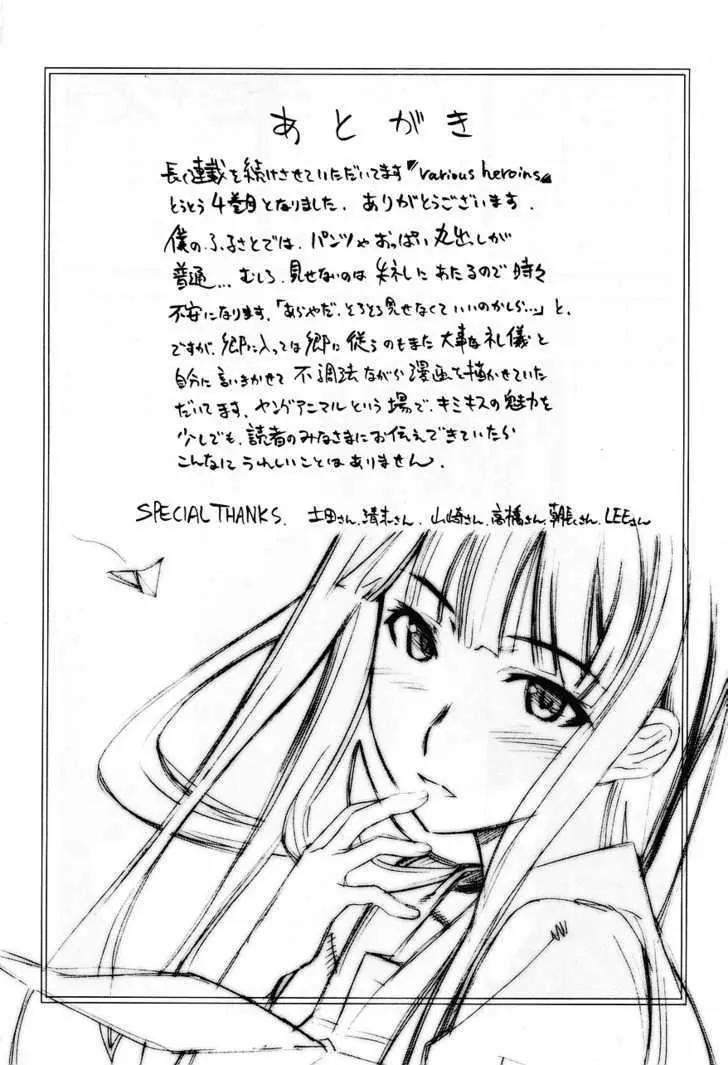 あとがき
長く連載を続けさせていただいてます『various heroins』
とうとう4巻目となりました。ありがとうございます。
僕のふるさとでは、パンツやおっぱい丸出しが
普通…むしろ、見せないのは失礼にあたるので時々
不安になります。「あらやだ、そろそろ見せなくていいのかしら…」と。
ですが、郷に入っては郷に従うのもまた大事な礼儀と
自分に言いきかせて不調法ながら漫画を描かせていた
だいてます。ヤングアニマルという場で、キミキスの魅力を
少しでも、読者のみなさまにお伝えできていたら
こんなにうれしいことはありません。
SPECIAL THANKS. 土田さん、清木さん、山崎さん、高橋さん、朝長さん、LEEさん